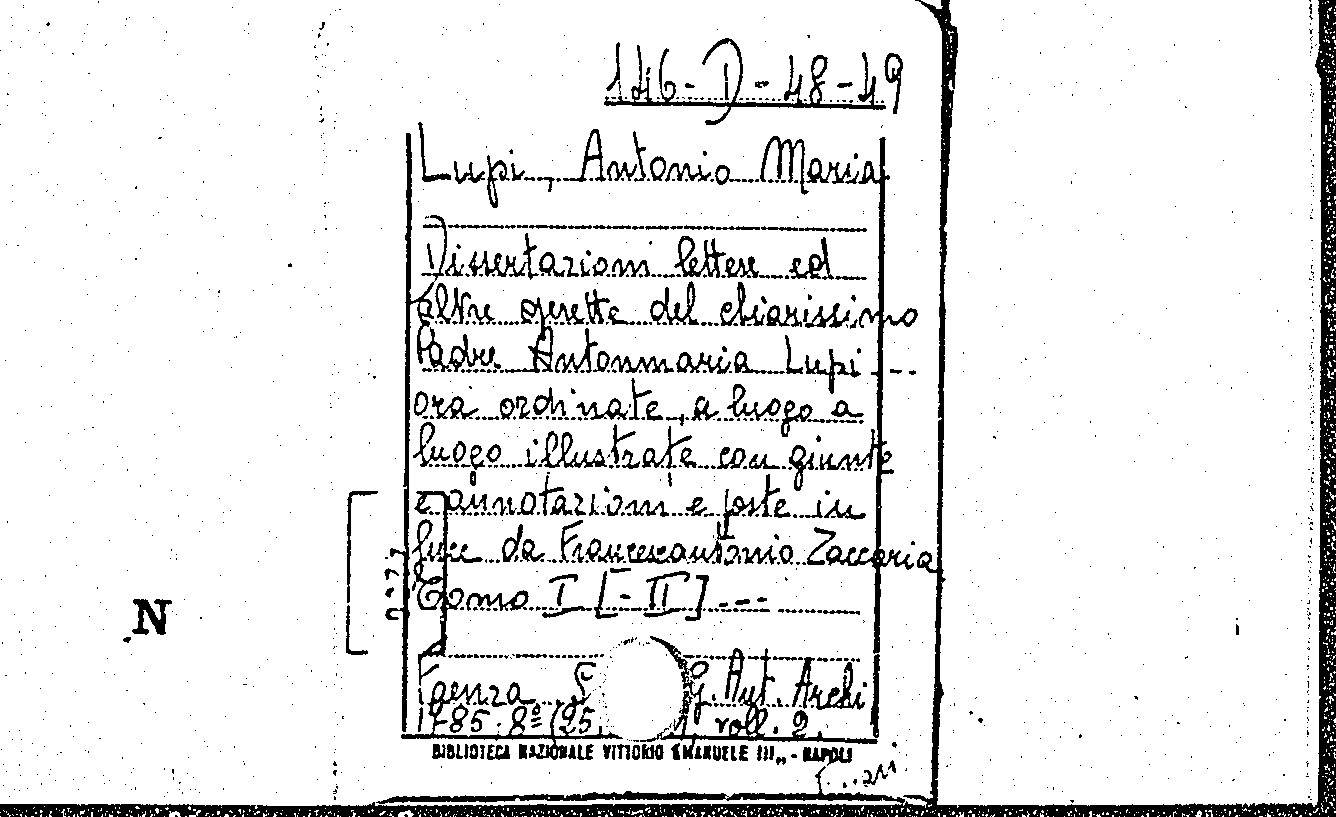 146-D-48-49
Lupi, Antonio Maria
Dissertazioni lettere ed
altre operette del chiarissimo
Padre Antonmaria Lupi ---
ora ordinate, a luogo a
luogo illustrate con giunte
e annotazioni e poste in
luce da Francescantonio Zaccaria
Tomo I [- II] ---
Faenza G. Ant. Archi
1785. 8º (25. voll. 2.
BIBLIOTECA NAZIONALE VITTORIO EMANUELE III,, - NAPOLI
N